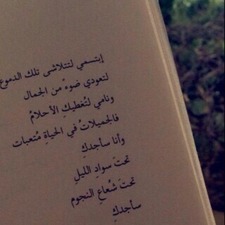 إبتسمي لتتلاشى تلك الدموع
لتعودي ضوءً من الجمال
ونامي لتُغطيكِ الأحلامُ
فالجميلاتُ في الحياةِ مُتعبات
وأنا سأجدكِ
تحتَ سوادِ الليلِ
تحتَ شُعاعِ النجوم
سأجدكِ